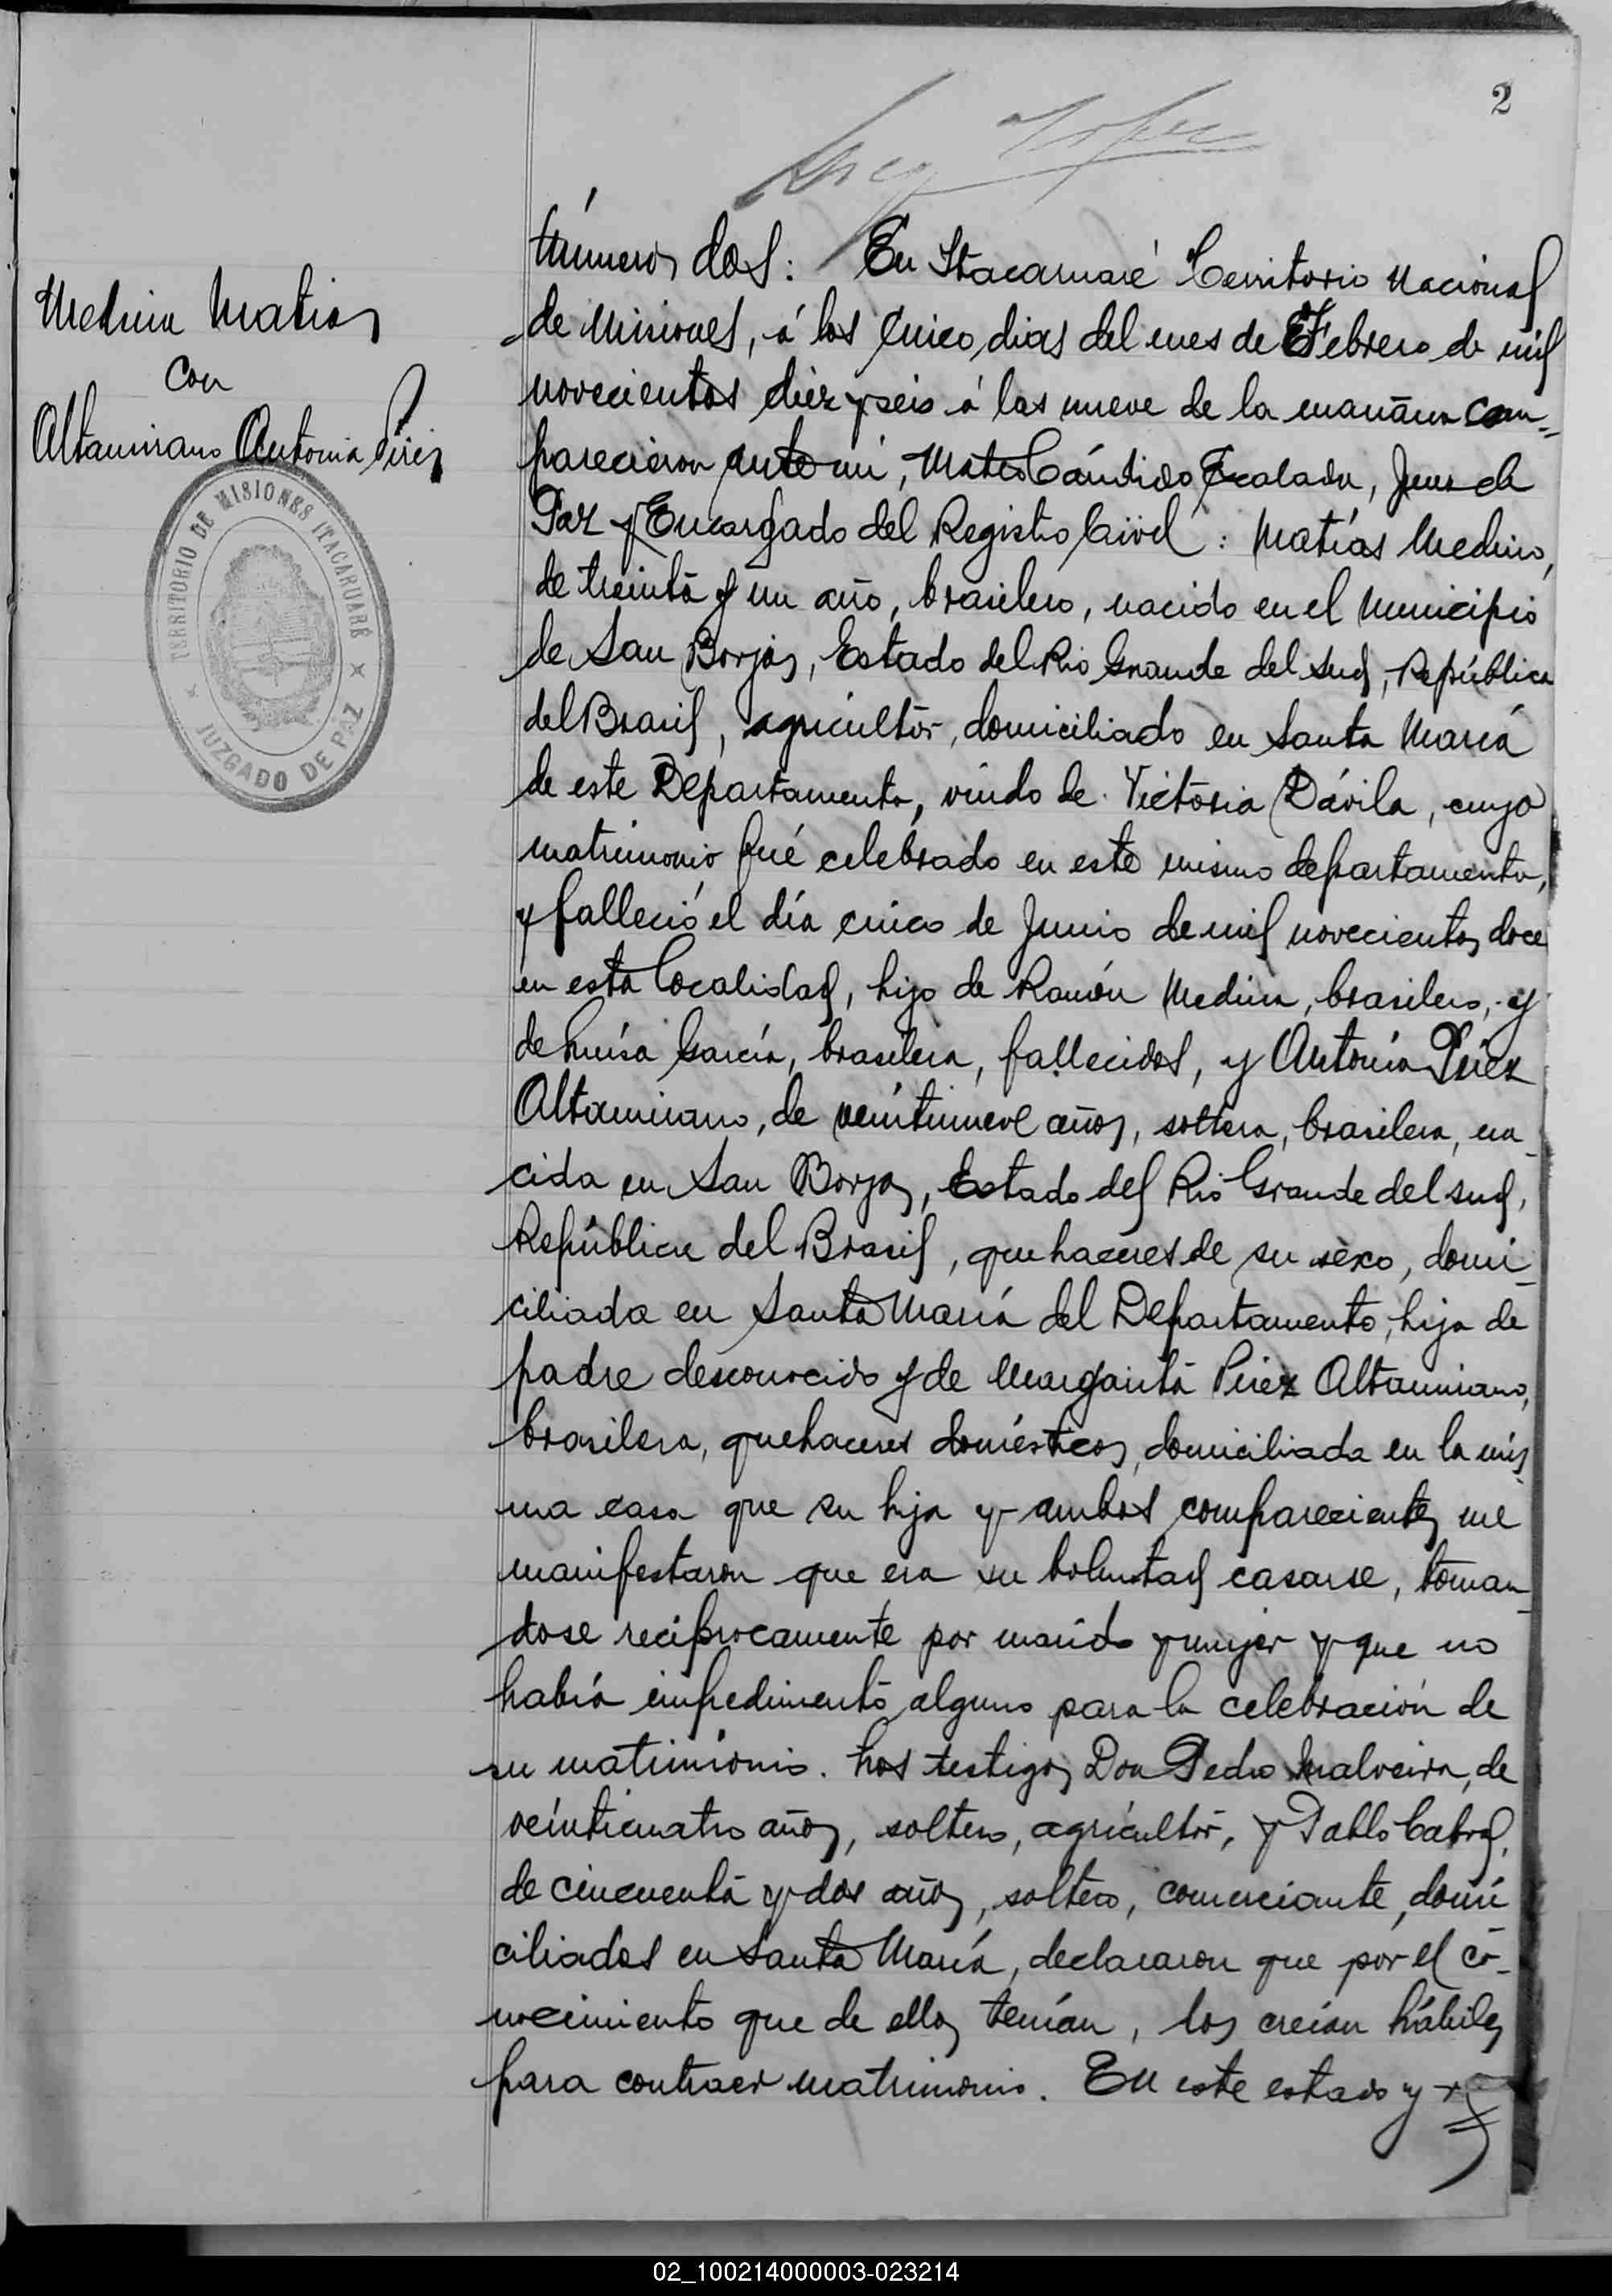 2
Medina Matias
con
Altamirano Antonia Pirez
TERRITORIO DE MISIONES ITACARUARÉ
JUZGADO DE PAZ
Número dos: En Itacaruaré Territorio Nacional
de Misiones, á los cinco dias del mes de Febrero de mil
novecientos diez y seis á las nueve de la mañana com-
parecieron ante mi, Mateo Cándido Escalada, Juez de
Paz y Encargado del Registro Civil: Matías Medina,
de treinta y un año, brasilero, nacido en el Municipio
de San Borja, Estado del Rio Grande del Sud, República
del Brasil, agricultor, domiciliado en Santa María
de este Departamento, viudo de Victoria Dávila, cuyo
matrimonio fué celebrado en este mismo departamento,
y falleció el día cinco de Junio de mil novecientos doce
en esta localidad, hijo de Ramón Medina, brasilero, y
de Luísa García, brasilera, fallecidos, y Antonia Pirez
Altamirano, de veintinueve años, soltera, brasilera, na-
cida en San Borja, Estado del Rio Grande del Sud,
República del Brasil, quehaceres de su sexo, domi-
ciliada en Santa María del Departamento, hija de
padre desconocido y de Margarita Pirez Altamirano,
brasilera, quehaceres domésticos, domiciliada en la mis-
ma casa que su hija y ambos comparecientes me
manifestaron que era su boluntad casarse, toman-
dose recíprocamente por marido y mujer y que no
había impedimento alguno para la celebración de
su matrimonio. Los testigos Don Pedro Malveira, de
veinticuatro años, soltero, agricultor, y Pablo Cabral,
de cincuenta y dos años, soltero, comerciante, domi
ciliados en Santa María, declararon que por el co-
nocimiento que de ellos tenían, los creían hábiles
para contraer matrimonio. En este estado y
02_100214000003-023214